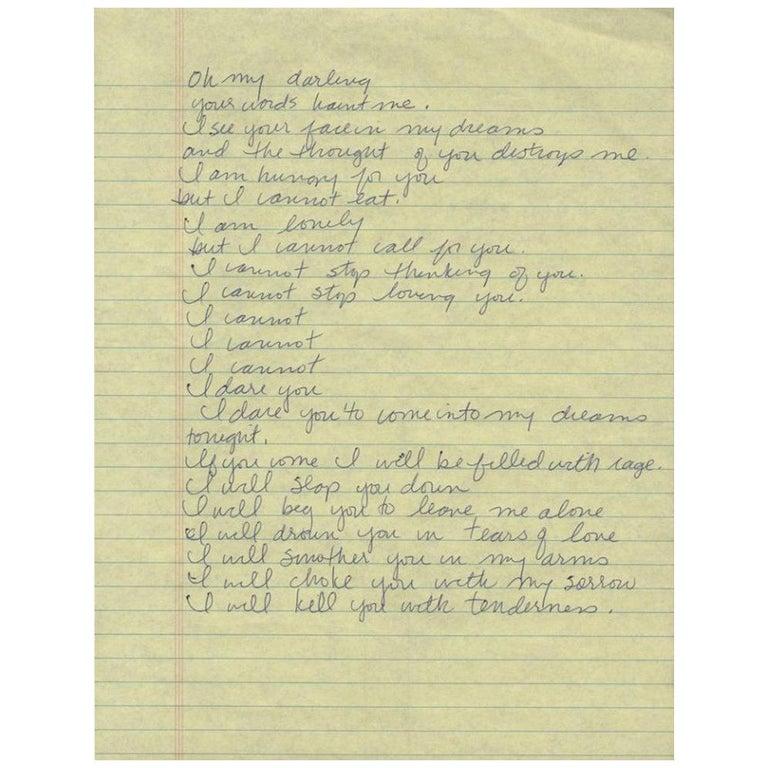 Oh my darling
your words haunt me.
I see your face in my dreams
and the thought of you destroys me.
I am hungry for you
but I cannot eat.
I am lonely
but I cannot call for you.
I cannot stop thinking of you.
I cannot stop loving you.
I cannot
I cannot
I cannot
I dare you
I dare you to come into my dreams
tonight.
If you come I will be filled with rage.
I will slap you down
I will beg you to leave me alone
I will drown you in tears of love
I will smother you in my arms
I will choke you with my sorrow
I will kill you with tenderness.